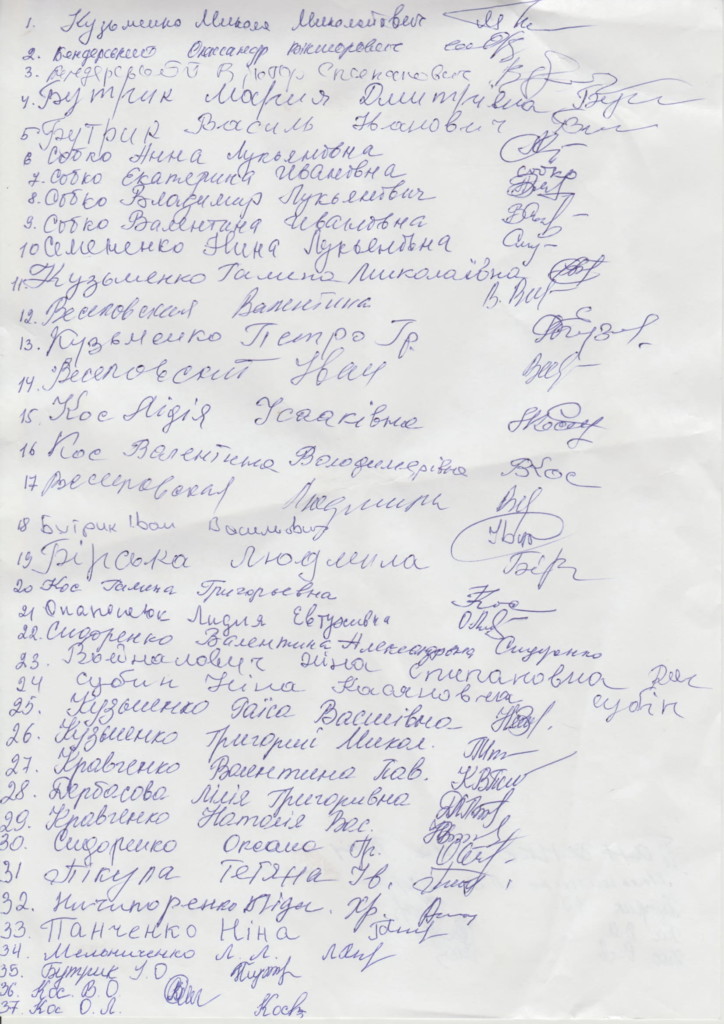 1. Кузьменко Микола Миколайович
2. Бендерський Олександр Вікторович
3. Бендерський Віктор Степанович
4. Бутрик Мария Дмитрівна
5 Бутрик Василь Іванович
6 Собко Анна Лукьянівна
7. Собко Екатерина Ивановна собко
8. Собко Владимир Лукьянович
9. Собко Валентина Ивановна
10 Семененко Нина Лукьеновна
11. Кузьменко Галина Миколаївна
12. Веселовская Валентина
13. Кузьменко Петро Гр.
14. Веселовский Иван
15. Кос Лідія Ісааківна
16 Кос Валентина Володимирівна ВКос
17 Веселовская Людмила
18 Бутрик Іван Васильович
19 Бірська Людмила Бір
20 Кос Галина Григорьевна
21 Лидия
22. Сидоренко Валентина Александровна Сидоренко
23. Войналович Ніна Степановна
24 Субін Ніна субін
25. Кузьменко Раїса Василівна
26. Кузьменко Григорій Микол.
27. Кравченко Валентина Пав.
28. Дербасова Лілія Григорівна
29. Кравченко Наталія Вас.
30. Сидоренко Оксана Гр.
31 Пікула Тетяна Ів.
32. Ничипоренко Лідія Хр.
33. Панченко Ніна
34. Мельниченко Л. Л.
35. Бутрик І.О
36. Кос В. О
37. Кос О. Л.